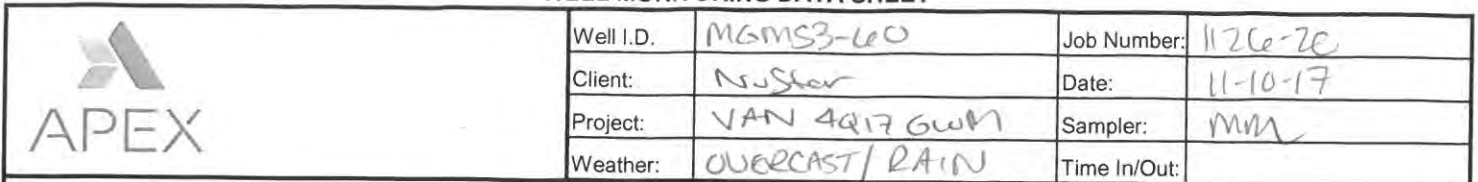 Well I.D. MGMS3-60 Job Number: 1126-20
Client: NuStar Date: 11-10-17
Project: VAN 4Q17 GWM Sampler: MM
Weather: OVERCAST/RAIN Time In/Out:
APEX